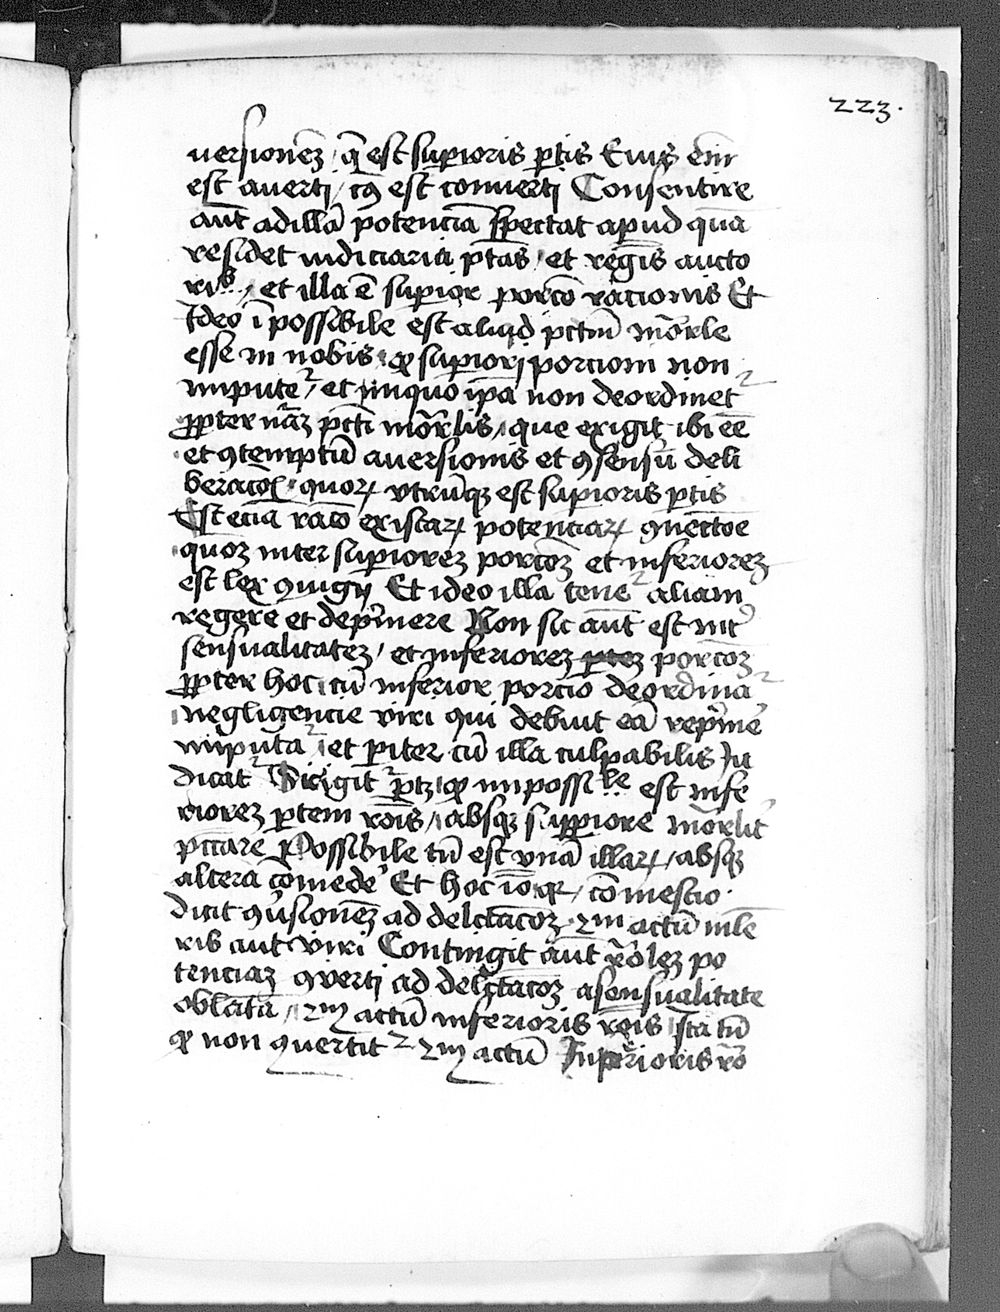 223.
uersionez / q̄ est supioris ptis Eius em̄
est auerti / cuꝰ est conuerti Consentire
aut̄ ad illā potenciā spectat apud quā
residet iudiciaria ptas̄ / et regīs aucto
ri / et illa ē supior porcō racionis Et
Ideo īpossibile est aliqd pctm̄ mōrle
esse in nobis qꝫ supiori porcioni non
impute / et inquo ip̄a non deordinet
ꝓpter nāz pcti mōrlis / que exigit ibi eē
et ꝯtemptū auersionis et ꝯsensū deli
beracōꝫ quoꝝ vtrūqꝫ est supioris ptis
Est eciā racō existaꝝ potenciaꝝ ꝯnectōe
quoꝫ inter supiorez porcōz et inferiorez
est lex ꝯiugij Et ideo illa tene aliam
regere et dep̄mere Non sic aut̄ est int̉
sensualitatez / et inferiorez porcōz
ꝓpter hoc cū inferior porcio deordina
negligencie viri qui debuit eā rep̄mē
imputa et piter cū illa culpabilis Iu
dicat ptꝫ qꝫ impossile est infe
riorez ptem rōis / absqꝫ suppiore mōrlit̉
pccare Possibile tn̄ est vnā illaꝝ / absqꝫ
altera cōmedē Et hoc iō qꝝ / cōmescio
dicit ꝯuisionez ad delctacōz actū mle
ris aut viri Contingit aut̄ rōlez po
tenciaz ꝯuerti ad delctacōz asensualitate
oblatā / actū inferioris rōis Ita tn̄
qꝫ non ꝯuertit actū Inperioris rō